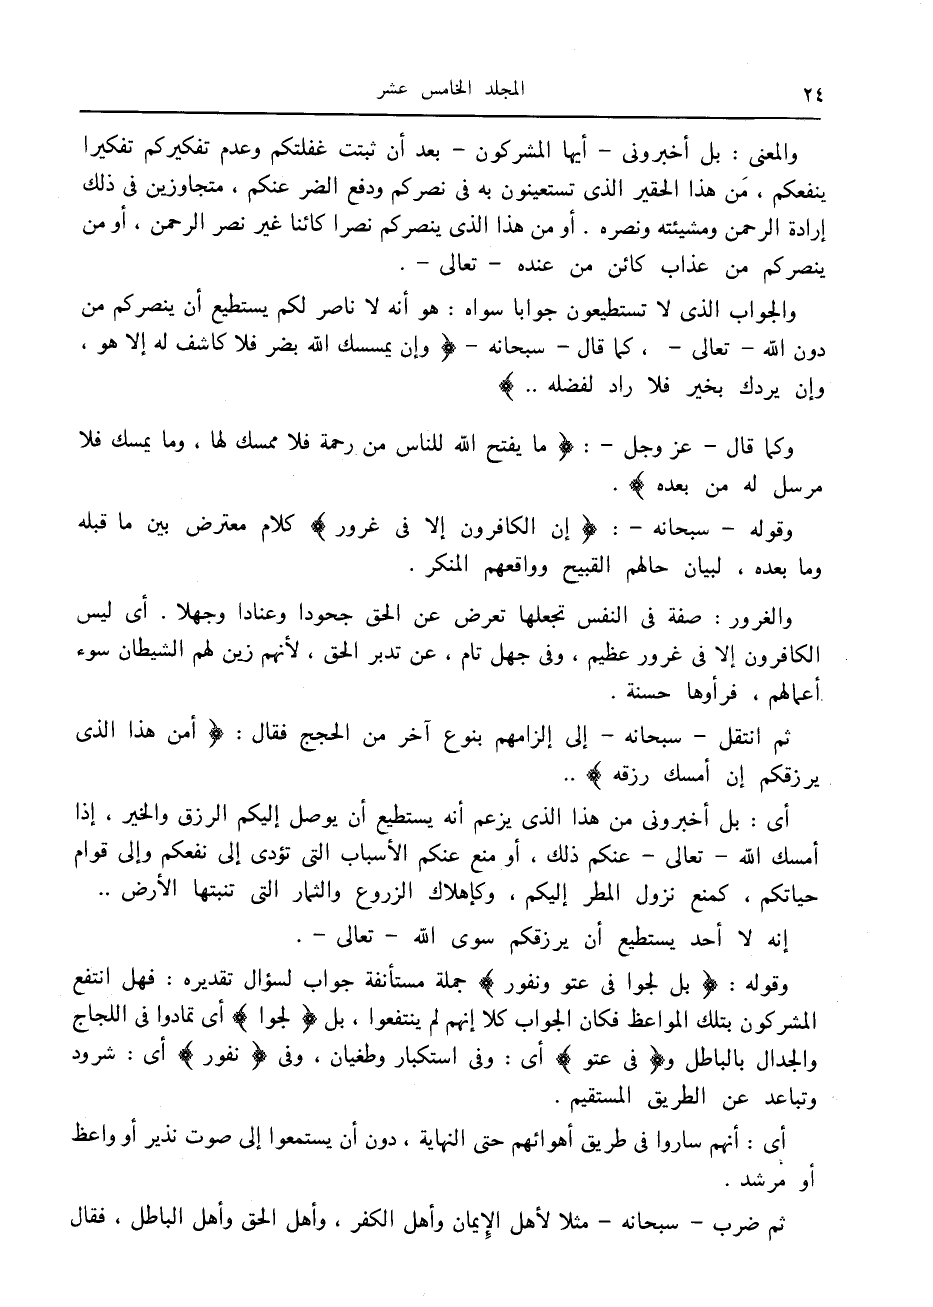 ٢٤
المجلد الخامس عشر
والمعنى : بل أخبرونى – أيها المشركون – بعد أن ثبتت غفلتكم وعدم تفكيركم تفكيرا
ينفعكم ، مَن هذا الحقير الذى تستعينون به فى نصركم ودفع الضر عنكم ، متجاوزين فى ذلك
إرادة الرحمن ومشيئته ونصره . أو من هذا الذى ينصركم نصرا كائنا غير نصر الرحمن ، أو من
ينصركم من عذاب كائن من عنده – تعالى – .
والجواب الذى لا تستطيعون جوابا سواه : هو أنه لا ناصر لكم يستطيع أن ينصركم من
دون الله – تعالى – ، كما قال – سبحانه – ﴿ وإن يمسسك الله بضر فلا كاشف له إلا هو ،
وإن يردك بخير فلا راد لفضله .. ﴾
وكما قال – عز وجل – : ﴿ ما يفتح الله للناس من رحمة فلا ممسك لها ، وما يمسك فلا
مرسل له من بعده ﴾ .
وقوله – سبحانه – : ﴿ إن الكافرون إلا فى غرور ﴾ كلام معترض بين ما قبله
وما بعده ، لبيان حالهم القبيح وواقعهم المنكر .
والغرور : صفة فى النفس تجعلها تعرض عن الحق جحودا وعنادا وجهلا . أى ليس
الكافرون إلا فى غرور عظيم ، وفى جهل تام ، عن تدبر الحق ، لأنهم زين لهم الشيطان سوء
أعمالهم ، فرأوها حسنة .
ثم انتقل – سبحانه – إلى إلزامهم بنوع آخر من الحجج فقال : ﴿ أمن هذا الذى
يرزقكم إن أمسك رزقه ﴾ ..
أى : بل أخبرونى من هذا الذى يزعم أنه يستطيع أن يوصل إليكم الرزق والخير ، إذا
أمسك الله – تعالى – عنكم ذلك ، أو منع عنكم الأسباب التى تؤدى إلى نفعكم وإلى قوام
حياتكم ، كمنع نزول المطر إليكم ، وكإهلاك الزروع والثمار التى تنبتها الأرض ..
إنه لا أحد يستطيع أن يرزقكم سوى الله – تعالى – .
وقوله : ﴿ بل لجوا فى عتو ونفور ﴾ جملة مستأنفة جواب لسؤال تقديره : فهل انتفع
المشركون بتلك المواعظ فكان الجواب كلا إنهم لم ينتفعوا ، بل ﴿ لجوا ﴾ أى تمادوا فى اللجاج
والجدال بالباطل و﴿ فى عتو ﴾ أى : وفى استكبار وطغيان ، وفى ﴿ نفور ﴾ أى : شرود
وتباعد عن الطريق المستقيم .
أى : أنهم ساروا فى طريق أهوائهم حتى النهاية ، دون أن يستمعوا إلى صوت نذير أو واعظ
أو مرشد .
ثم ضرب – سبحانه – مثلا لأهل الإِيمان وأهل الكفر ، وأهل الحق وأهل الباطل ، فقال